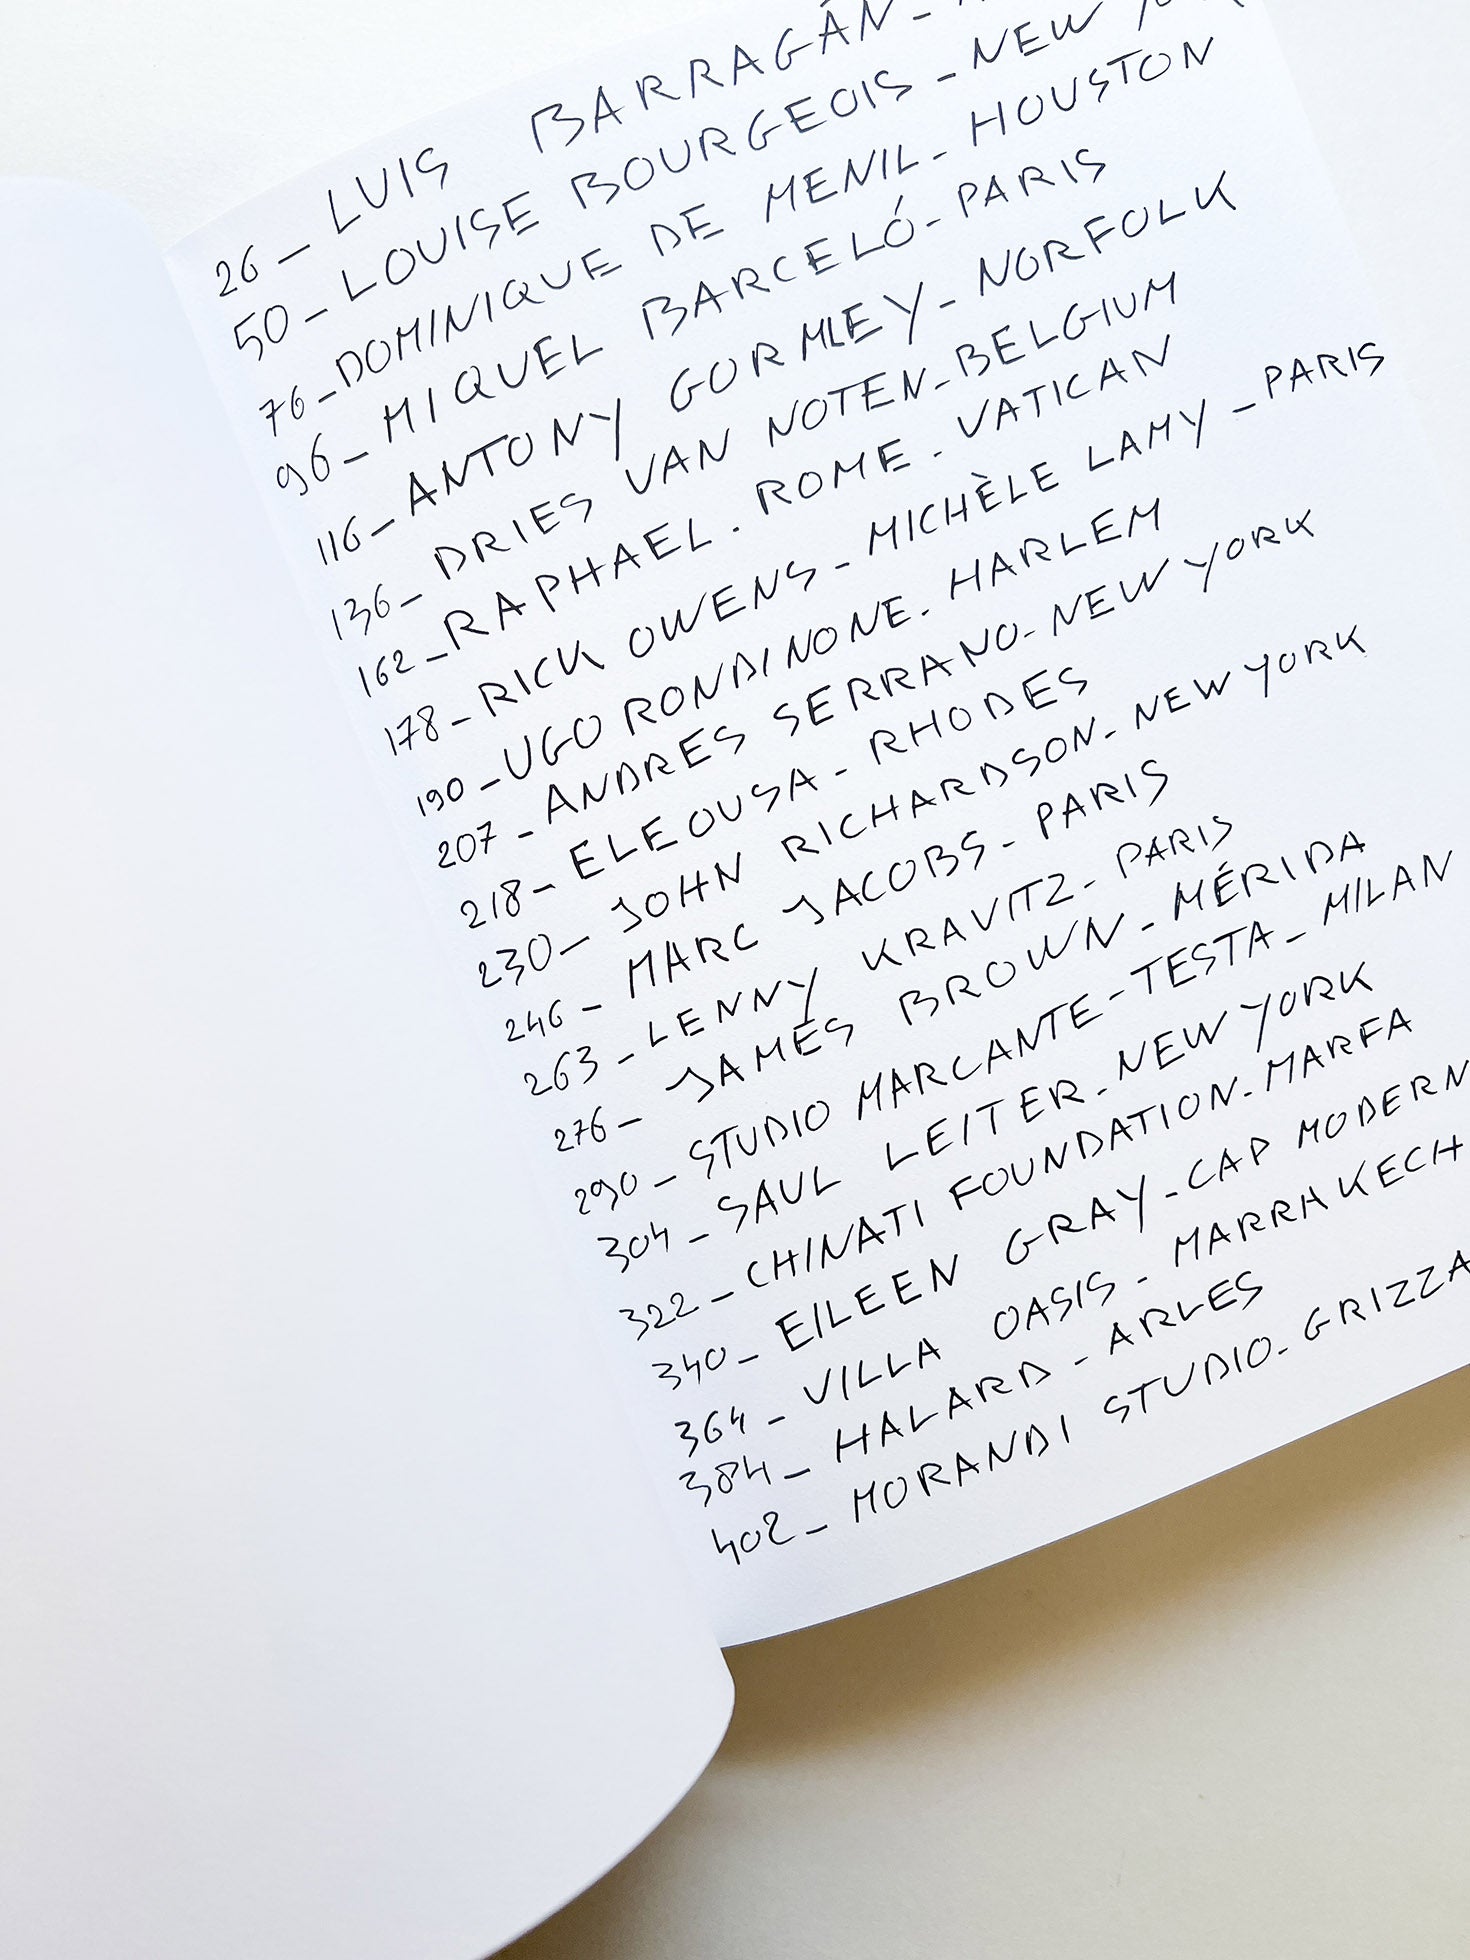 26 – LUIS BARRAGÁN –
50 – LOUISE BOURGEOIS – NEW
76 – DOMINIQUE DE MENIL – HOUSTON
96 – MIQUEL BARCELÓ – PARIS
116 – ANTONY GORMLEY – NORFOLK
136 – DRIES VAN NOTEN – BELGIUM
162 – RAPHAEL . ROME . VATICAN
178 – RICK OWENS – MICHÈLE LAMY – PARIS
190 – UGO RONDINONE . HARLEM
207 – ANDRES SERRANO – NEW YORK
218 – ELEOUSA – RHODES
230 – JOHN RICHARDSON – NEW YORK
246 – MARC JACOBS – PARIS
263 – LENNY KRAVITZ – PARIS
276 – JAMES BROWN – MÉRIDA
290 – STUDIO MARCANTE – TESTA – MILAN
304 – SAUL LEITER – NEW YORK
322 – CHINATI FOUNDATION . MARFA
340 – EILEEN GRAY – CAP MODERN
364 – VILLA OASIS – MARRAKECH
384 – HALARD – ARLES
402 – MORANDI STUDIO – GRIZZA